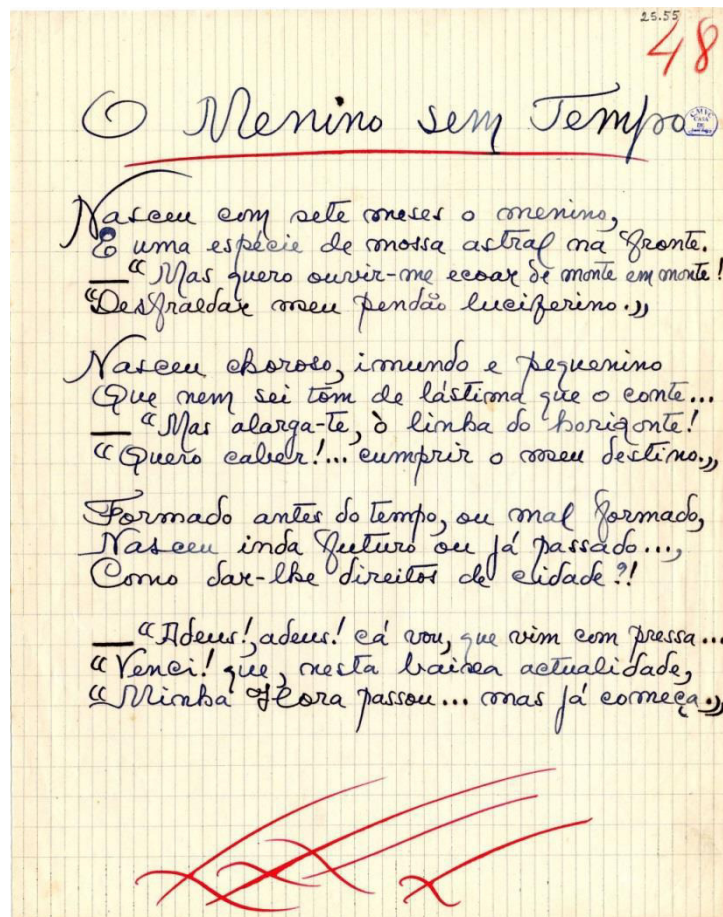 25.55
48
O Menino sem Tempo
Nasceu com sete meses o menino,
E uma espécie de mossa astral na fronte.
— “Mas quero ouvir-me ecoar de monte em monte!
“Desfraldar meu pendão luciferino.„
Nasceu choroso, imundo e pequenino
Que nem sei tom de lástima que o conte...
— “Mas alarga-te, ò linha do horizonte!
“Quero caber!... cumprir o meu destino.„
Formado antes do tempo, ou mal formado,
Nasceu inda futuro ou já passado...,
Como dar-lhe direitos de cidade?!
— “Adeus!, adeus! cá vou, que vim com pressa...
“Venci! que, nesta baixa actualidade,
“Minha Hora passou... mas já começa.„